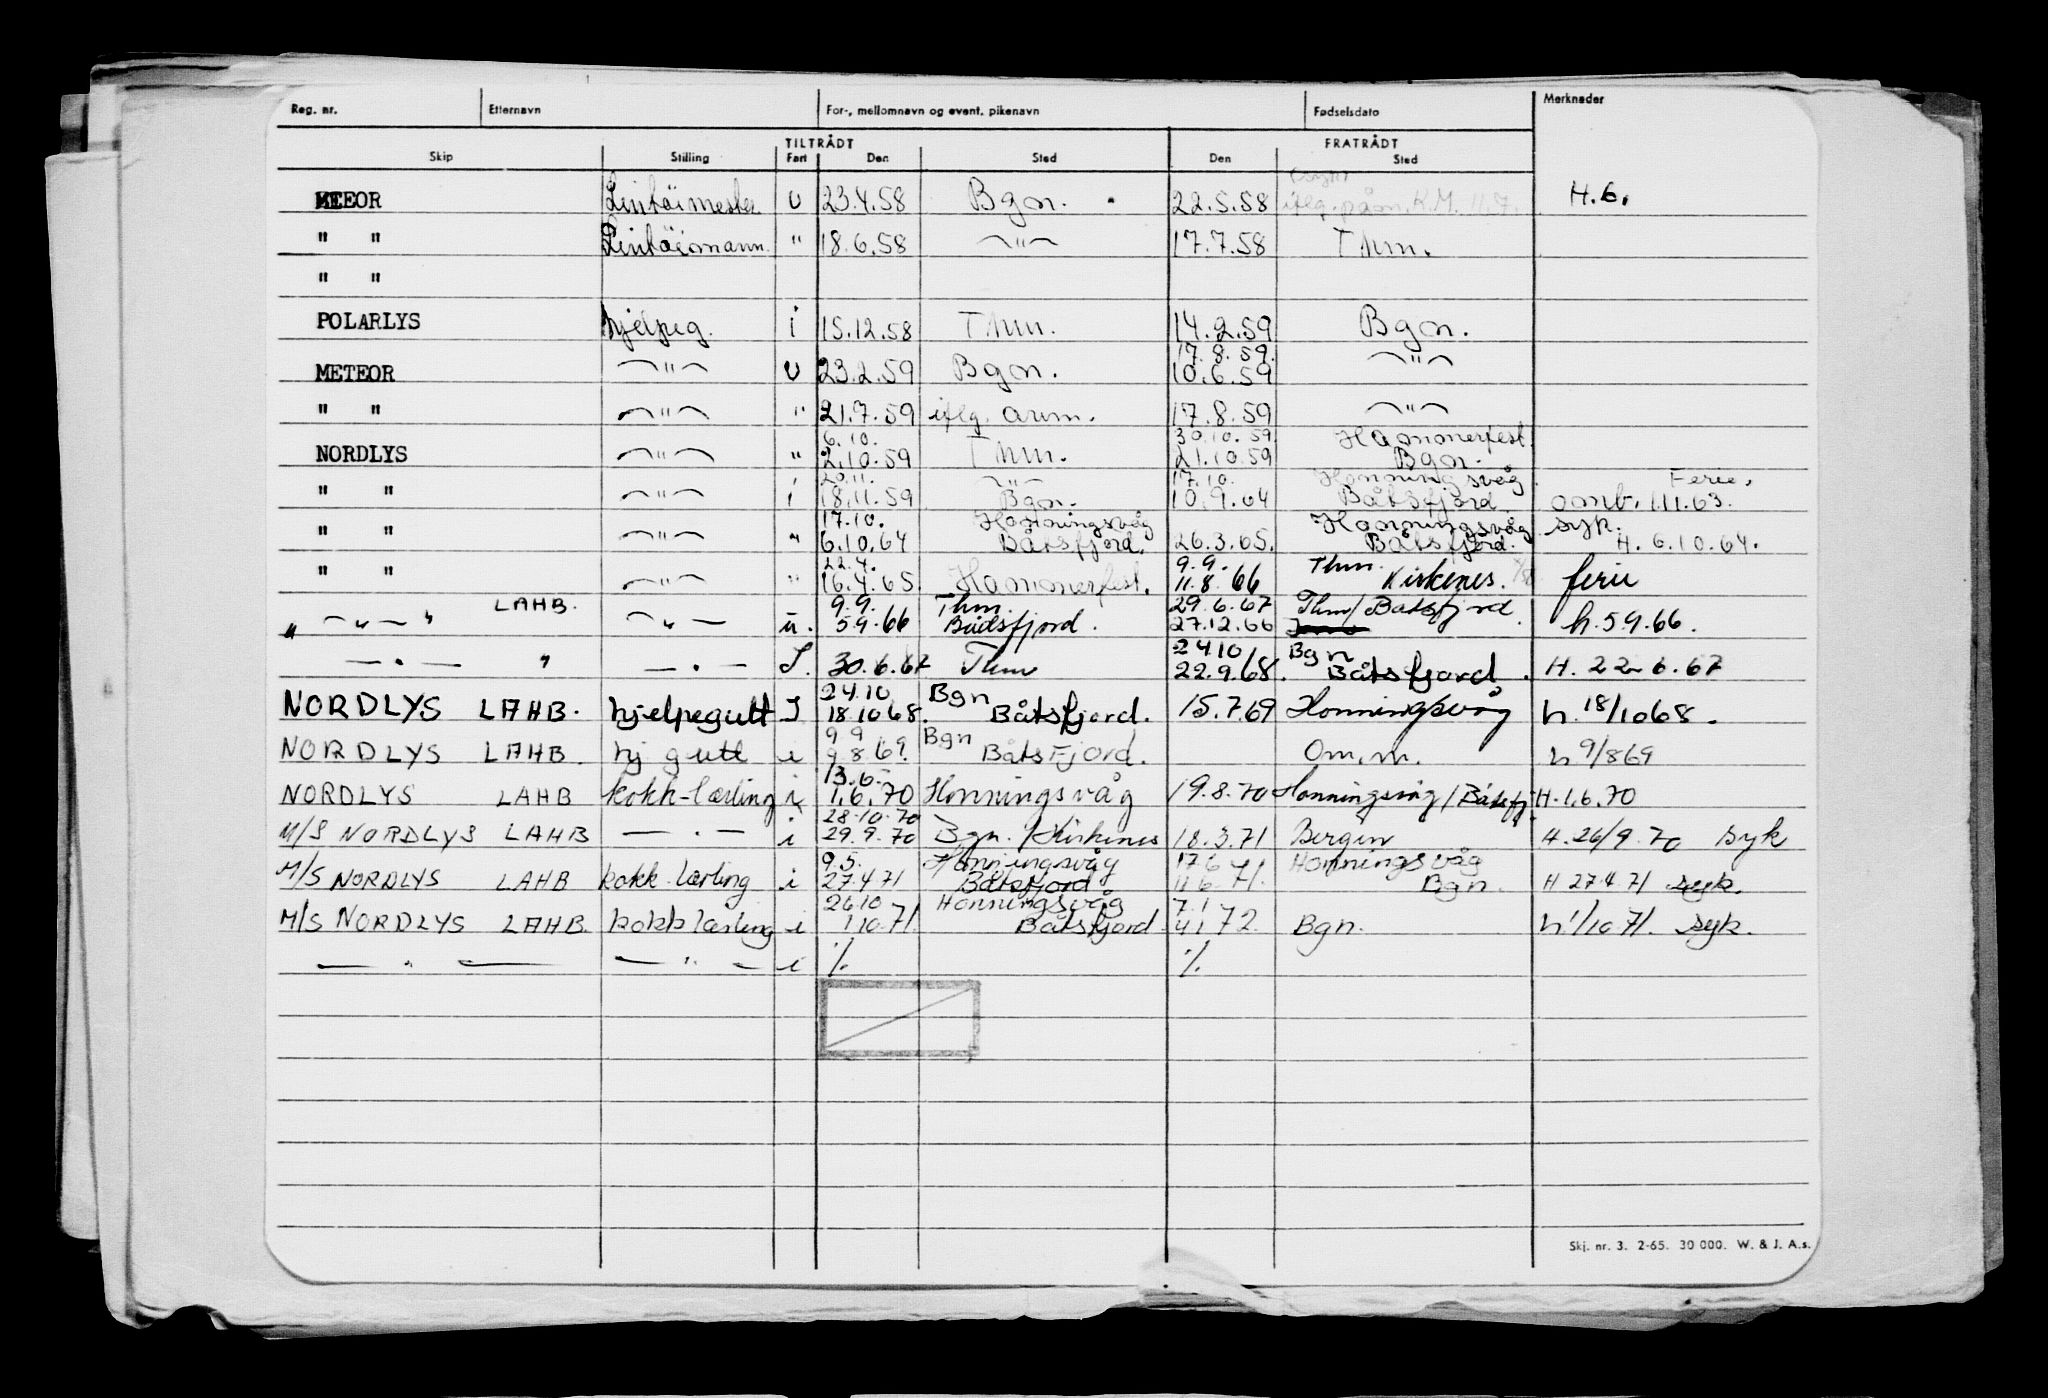 Reg. nr. Etternavn For-, mellomnavn og event. pikenavn Fødselsdato Merknader
TILTRÅDT FRATRÅDT
Skip Stilling Fart Den Sted Den Sted
METEOR Lintöimester U 23.4.58 Bgn. 22.5.58 iflg. påm. K.M. 11.7. H.6.
" " Lintöimann. " 18.6.58 —"— 17.7.58 Thm.
" "
POLARLYS hjelpeg. i 15.12.58 Thm. 14.2.59 Bgn.
17.8.59.
METEOR —"— U 23.2.59 Bgn. 10.6.59 —"—
" " —"— " 21.7.59 iflg. anm. 17.8.59 —"—
6.10. 30.10.59 Hammerfest.
NORDLYS —"— " 2.10.59 Thm. 21.10.59 Bgn.
20.11. —"— 17.10. Honningsvåg Ferie.
" " —"— i 18.11.59 Bgn. 10.9.64 Båtsfjord. omb. 1.11.63.
17.10. Honningsvåg Honningsvåg syk.
" " —"— " 6.10.64 Båtsfjord. 26.3.65. Båtsfjord. H. 6.10.64.
22.4. 9.9. Thm.
" " —"— " 16.4.65 Hammerfest. 11.8.66 Kirkenes. ferie
LAHB. 9.9. Thm. 29.6.67 Thm/Båtsfjord
" —"— " —"— u. 5.9.66 Båtsfjord. 27.12.66 h.5.9.66.
24.10 Bgn
— " — " — " — I. 30.6.67 Thm 22.9.68. Båtsfjord. H. 22.6.67
24.10 Bgn
NORDLYS LAHB. hjelpegutt I 18.10 68. Båtsfjord. 15.7.69 Honningsvåg h. 18/10 68.
9 9 Bgn
NORDLYS LAHB. hj gutt i 9 8 69. BåtsFjord. Om.m. h 9/8 69
13.6.
NORDLYS LAHB kokk-lærling i 1.6.70 Honningsvåg 19.8.70 Honningsvåg/Båtsfj H. 1.6.70
28.10.70
M/S NORDLYS LAHB — " — i 29.9.70 Bgn. /Kirkenes 18.3.71 Bergen H. 26/9.70 Syk
9.5. Honningsvåg 17.6 Honningsvåg
M/S NORDLYS LAHB kokk lærling i 27.4 71 Båtsfjord 11.6.71. Bgn. H 27.4 71 syk.
26.10 Honningsvåg 7.1
M/S NORDLYS LAHB. kokklærling i 1 10.71. Båtsfjord. 4.1 72. Bgn. h 1/10 71. syk.
— " — — " — i %. %.
Skj. nr. 3. 2-65. 30 000. W. & J. A.s.